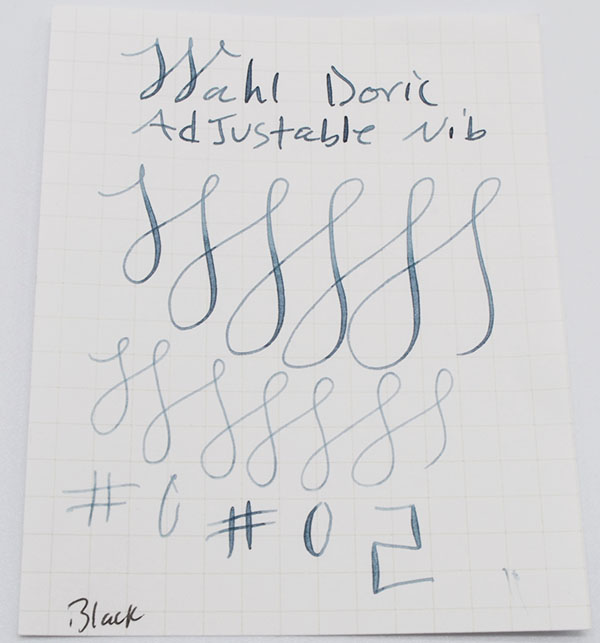 Wahl Doric
AdJustable Nib
#0 #0 2
Black